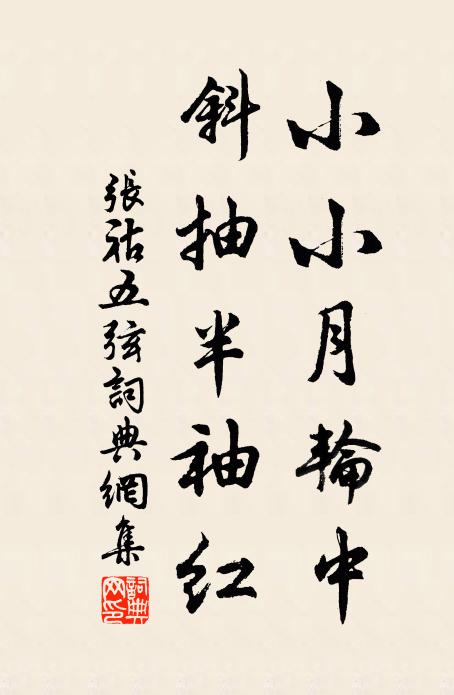 小小月輪中
斜抽半袖紅
張祜五弦詞典網集
詞典网印